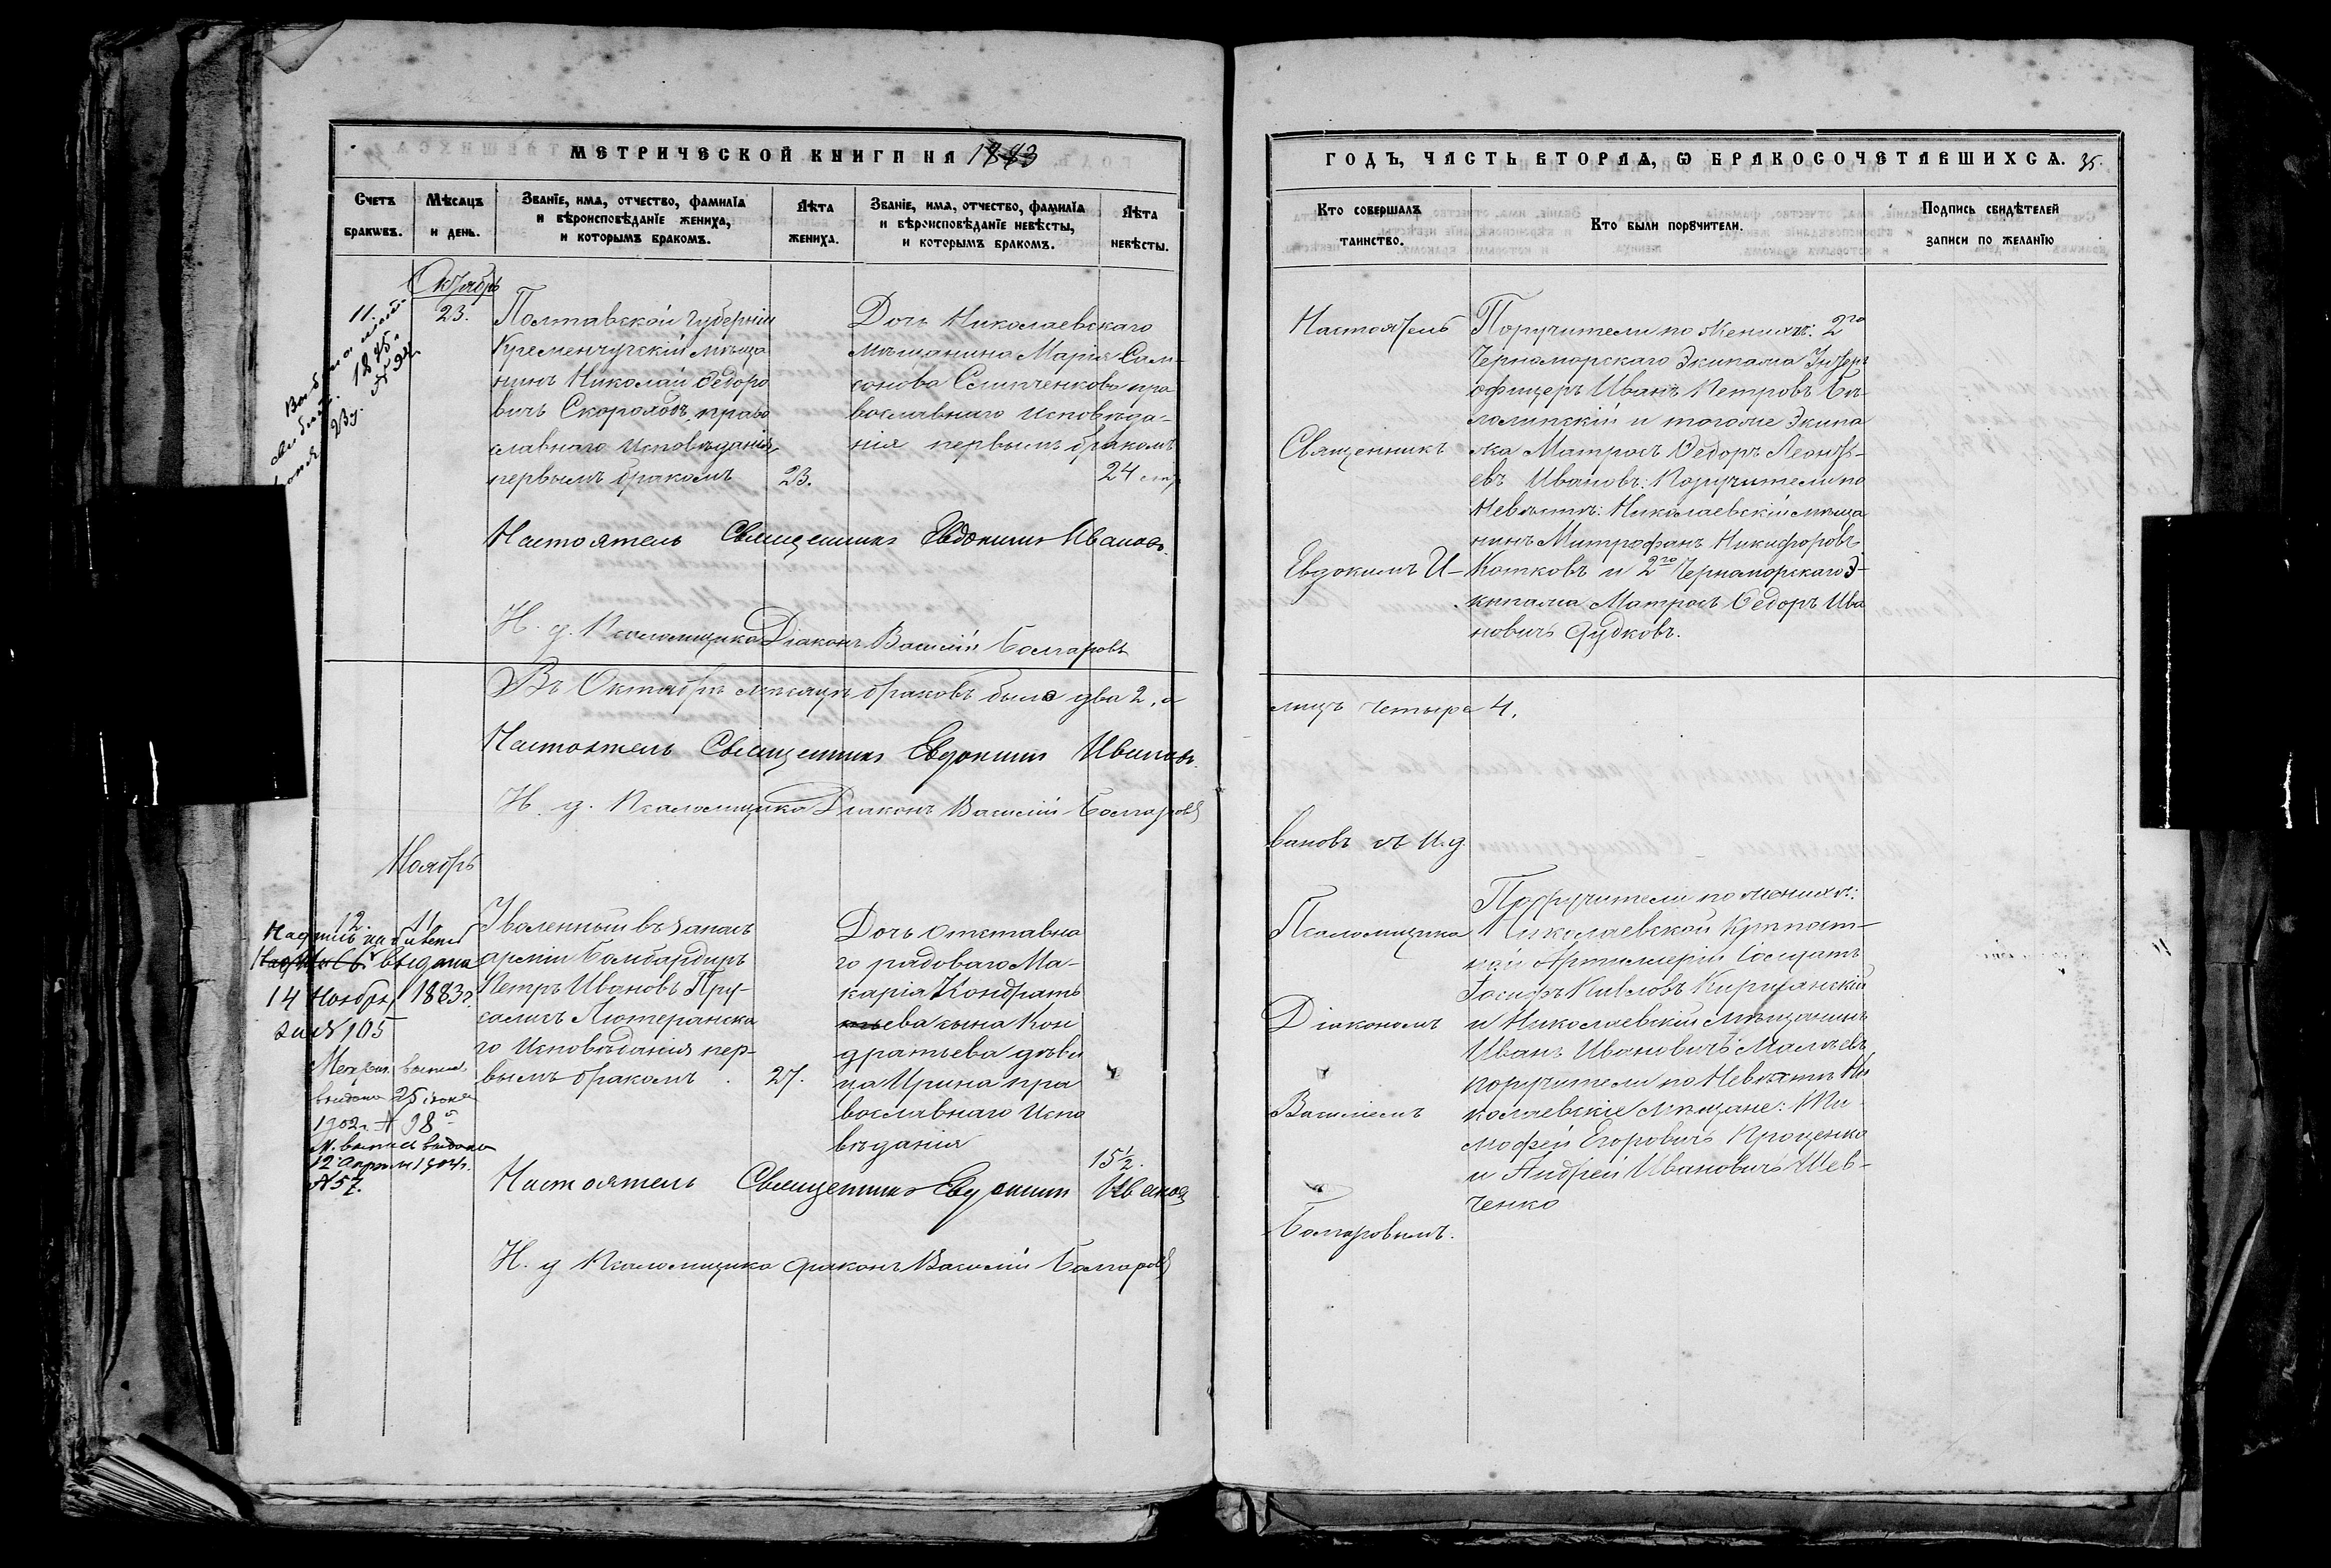 МЕТРИЧЕСКОЙ КНИГИ НА 1883
Счетъ браковъ.
Мѣсяцъ и день.
Званіе, имя, отчество, фамилія
и вѣроисповѣданіе жениха,
и которымъ бракомъ.
Лѣта
жениха.
Званіе, имя, отчество, фамилія
и вѣроисповѣданіе невѣсты,
и которымъ бракомъ.
Лѣта
невѣсты.
Октябрь
11.
23.
Полтавской Губерніи
Кременчугскій мѣща
нинъ Николай Ѳедоро
вичъ Скороходъ, право
славнаго исповѣданія,
первымъ бракомъ
23.
Дочь Николаевскаго
мѣщанина Марія Сам-
сонова Слипченкова пра
вославнаго исповѣда-
нія первымъ бракомъ
24
Настоятель Священникъ Евдокимъ Ивановъ.
И. д. Псаломщика Діаконъ Василій Болгаровъ
Въ Октябрѣ мѣсяцѣ браковъ было два 2, а
Настоятель Священникъ Евдокимъ Ивановъ.
И. д. Псаломщика Діаконъ Василій Болгаровъ
Ноябрь
12.
11
Надпись на
выдана
14 Ноября 1883г.
за № 105
выдана 25
1902г. № 98
М. выпись выдана
12 апрѣля
№ 57.
Уволенный въ запасъ
арміи Бомбардиръ
Петръ Ивановъ Пру-
салисъ Лютеранска
го Исповѣданія пер-
вымъ бракомъ.
27.
Дочь отставна
го рядоваго Ма-
карія Кондрать
ева сына Кон
дратьева дѣви
ца Ирина пра
вославнаго Испо
вѣданія
15½.
Настоятель Священникъ Евдокимъ Ивановъ
И. д Псаломщика діаконъ Василій Болгаровъ
ГОДЪ, ЧАСТЬ ВТОРАЯ, Ѡ БРАКОСОЧЕТАВШИХСЯ. 35.
Кто совершалъ
таинство.
Кто были поручители.
Подпись свидѣтелей
записи по желанію
Настоятель
Священникъ
Евдокимъ И-
вановъ съ И. д.
Псаломщика
Діакономъ
Василіемъ
Болгаровымъ.
Поручители по женихѣ: 2го
Черноморскаго Экипажа Унтеръ
офицеръ Иванъ Петровъ Бѣ-
лолипскій и тогоже Экипа
жа Матросъ Ѳедоръ Леонть-
евъ Ивановъ: Поручители по
Невѣстѣ: Николаевскій мѣща
нинъ Митрофанъ Никифоровъ
Котковъ и 2го Черноморскаго Э-
кипажа Матросъ Ѳедоръ Ива
новичъ Дудковъ.
лицъ четыре 4.
Поручители по женихѣ:
Николаевской Крѣпост-
ной Артиллеріи Солдатъ
Іосифъ
и Николаевскій мѣщанинъ
Иванъ Ивановичъ
поручители по Невѣстѣ Ни
колаевскіе мѣщане: Ти-
мофей Егоровичъ Проценко
и Андрей Ивановичъ Шев-
ченко